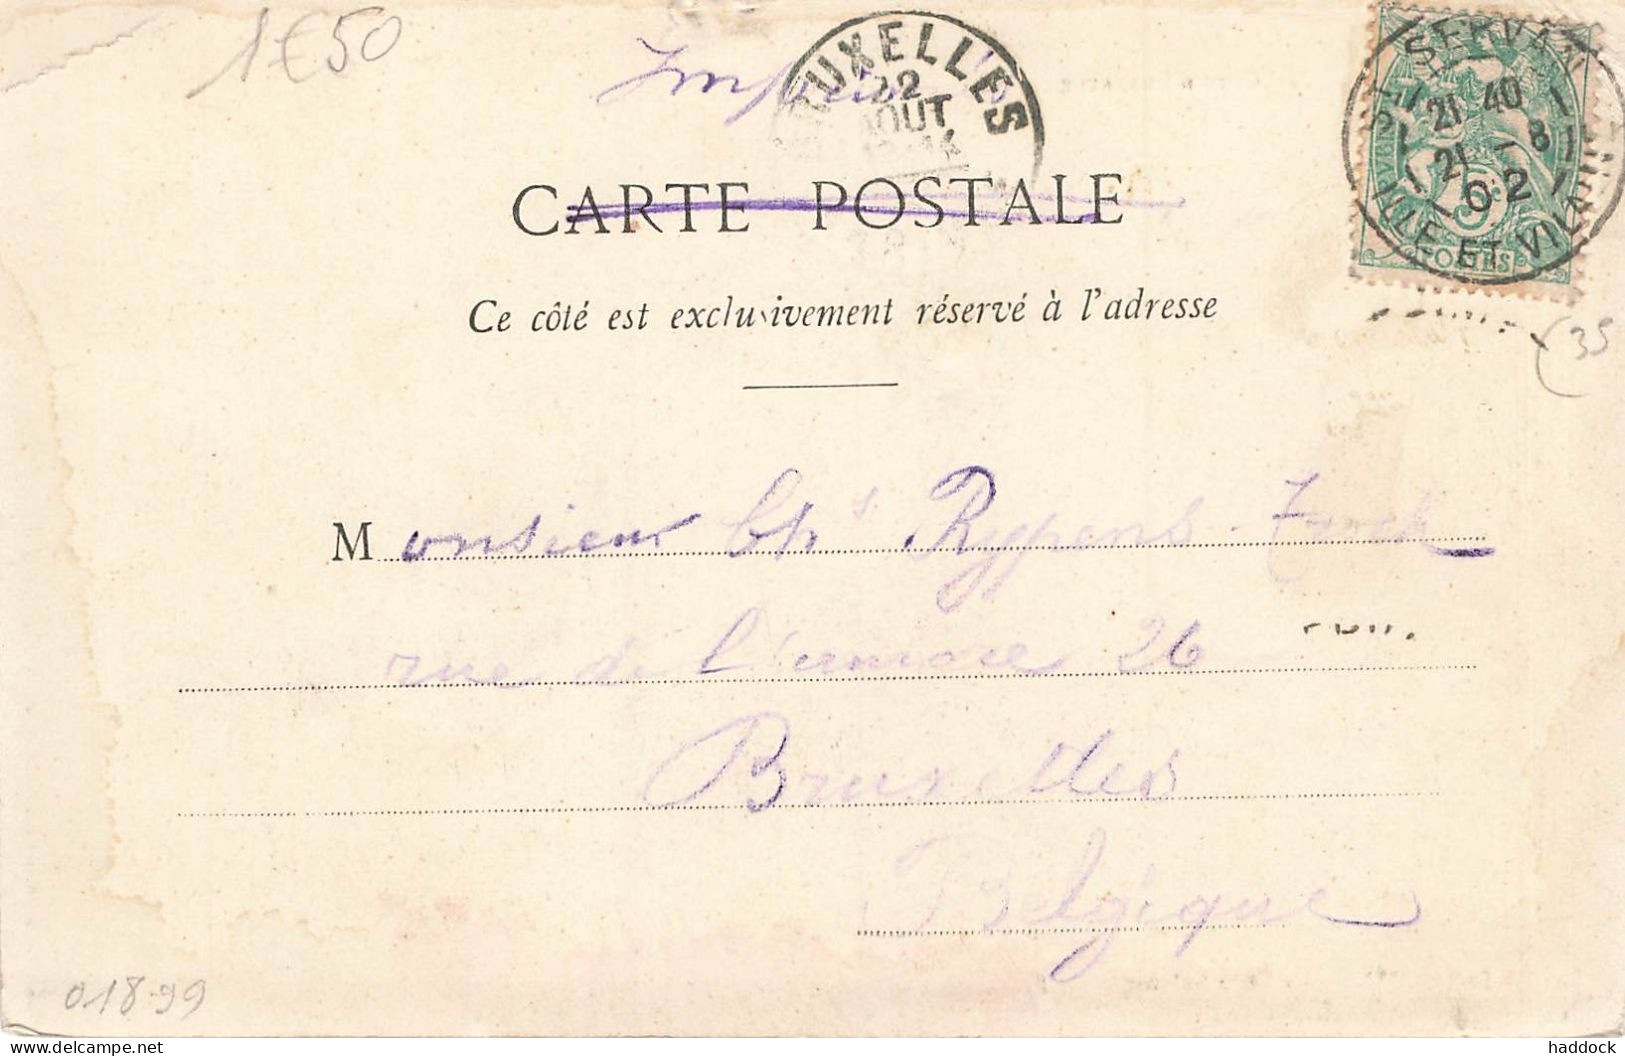 1€50
BRUXELLES
22
AOUT
ST SERVAN
21 40
21 - 8
02
ILLE ET VILAINE
5
POSTES
(35
CARTE POSTALE
Ce côté est exclusivement réservé à l'adresse
Monsieur Chs Ryppens
rue de 26
Bruxelles
Belgique
01899
www.delcampe.net
haddock